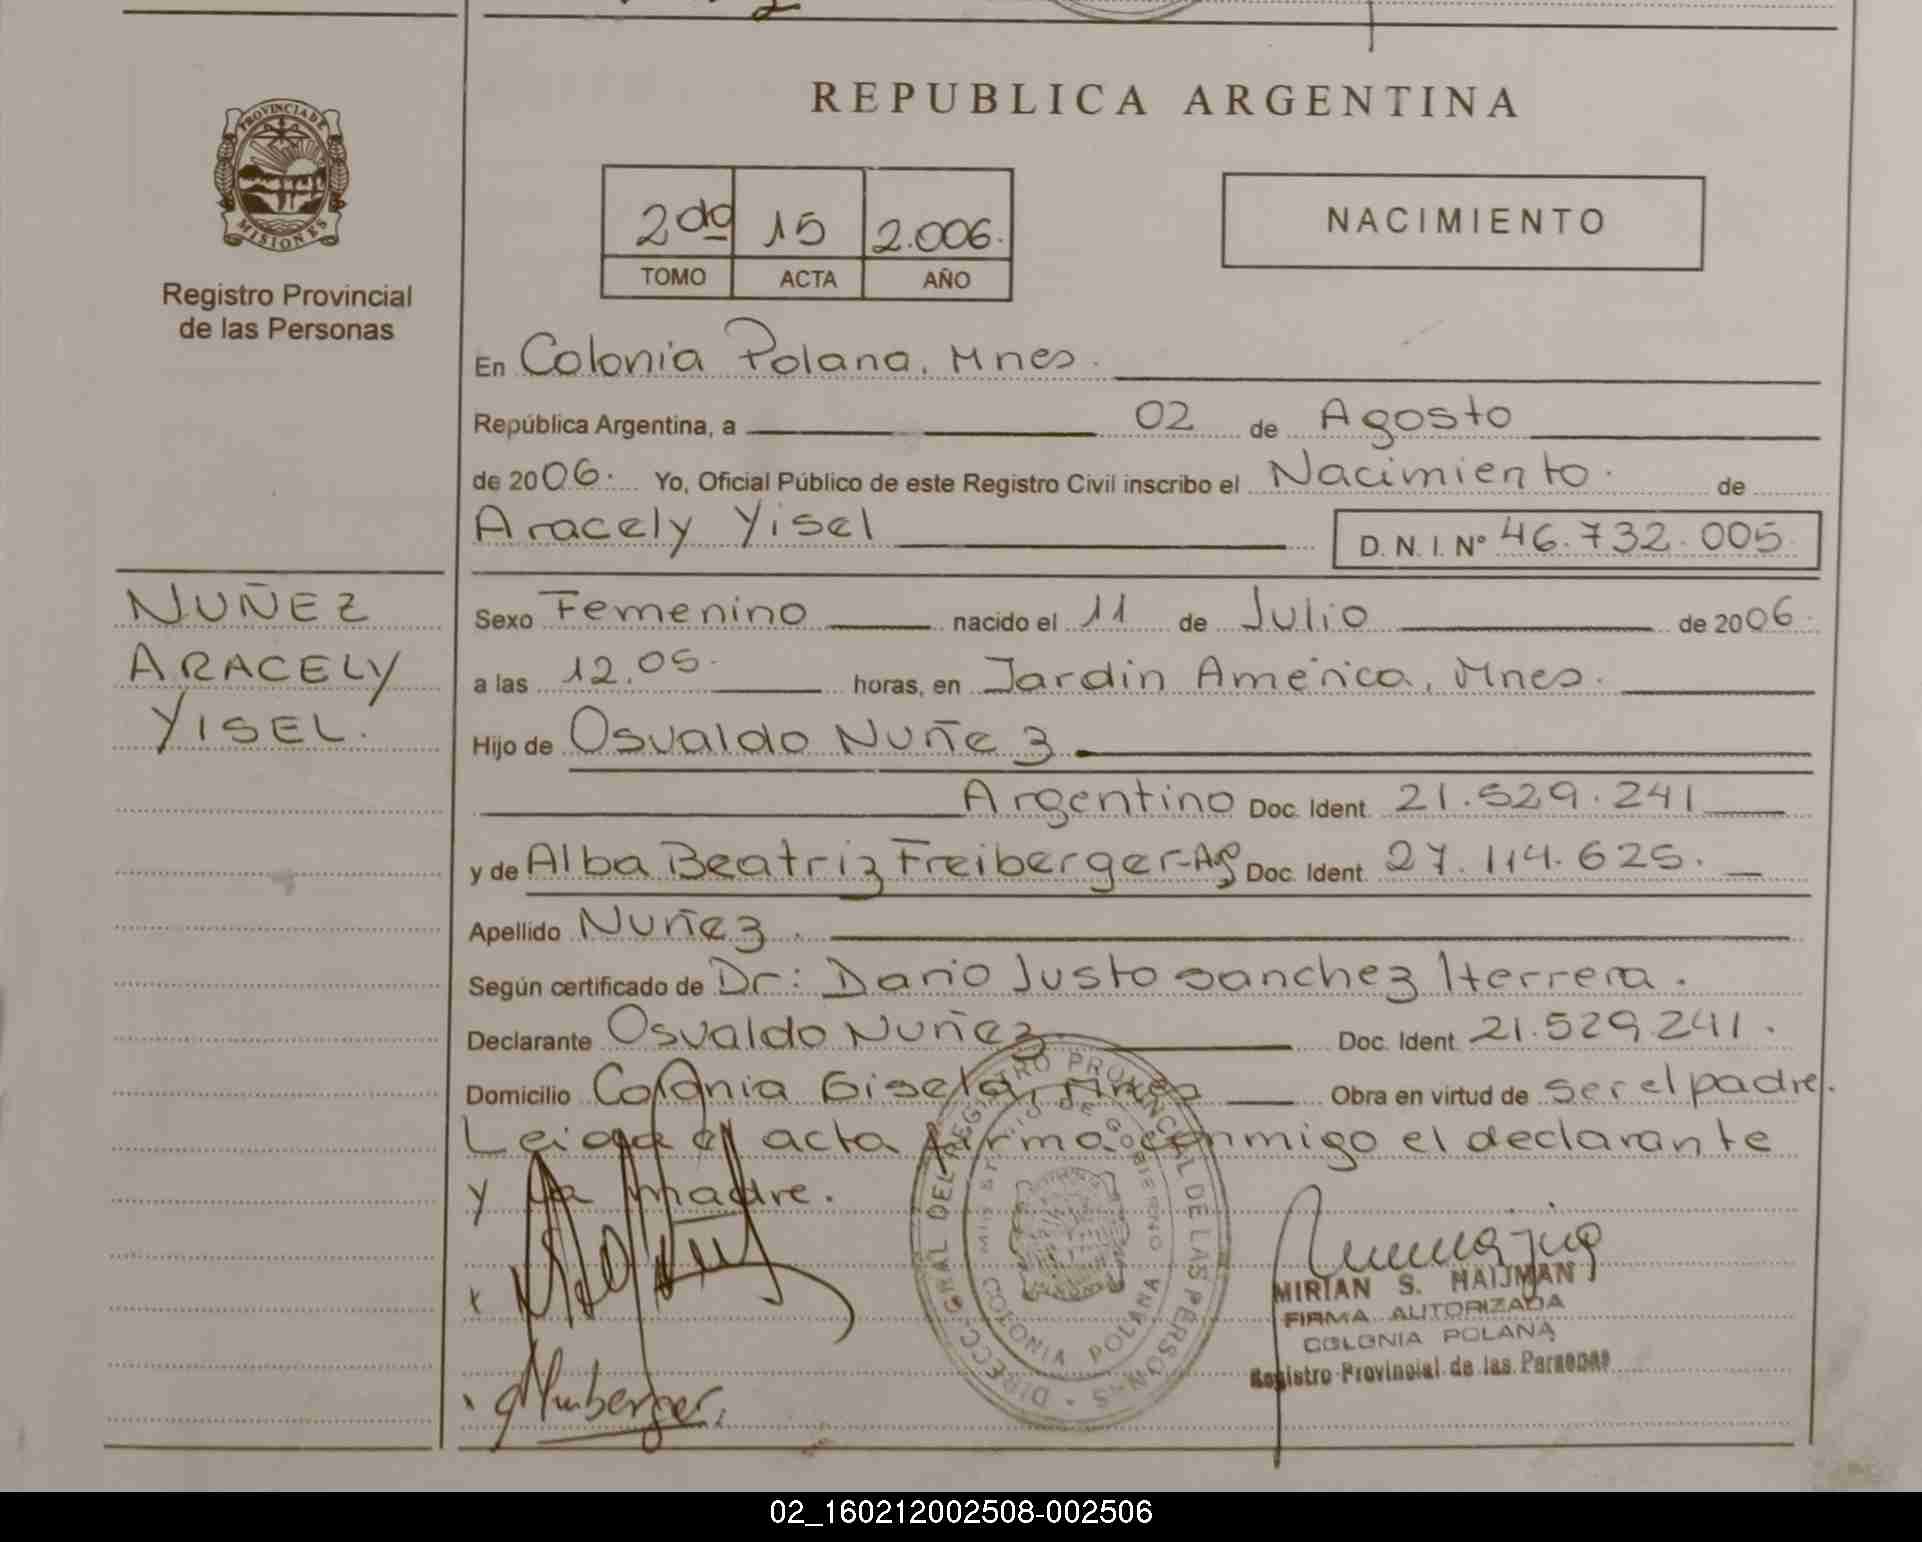 REPUBLICA ARGENTINA
PROVINCIA DE
MISIONES
Registro Provincial
de las Personas
2do 15 2.006.
TOMO ACTA AÑO
NACIMIENTO
En Colonia Polana, Mnes.
República Argentina, a 02 de Agosto
de 2006. Yo, Oficial Público de este Registro Civil inscribo el Nacimiento. de
Aracely Yisel D. N. I. Nº 46.732.005.
NUÑEZ
ARACELY
YISEL.
Sexo Femenino nacido el 11 de Julio de 2006.
a las 12.05. horas, en Jardin América, Mnes.
Hijo de Osvaldo Nuñez
Argentino Doc. Ident. 21.529.241
y de Alba Beatriz Freiberger-Ag Doc. Ident. 27.114.625.
Apellido Nuñez.
Según certificado de Dr: Dario Justo Sanchez Herrera.
Declarante Osvaldo Nuñez Doc. Ident. 21.529.241.
Domicilio Colonia Gisela, Mnes Obra en virtud de ser el padre.
Leida el acta firma conmigo el declarante
y la madre.
DIRECC. GRAL DEL REGISTRO PROVINCIAL DE LAS PERSONAS
MINISTERIO DE GOBIERNO
COLONIA POLANA
MIRIAN S. HAIJMAN
FIRMA AUTORIZADA
COLONIA POLANA
Registro Provincial de las Personas
02_160212002508-002506